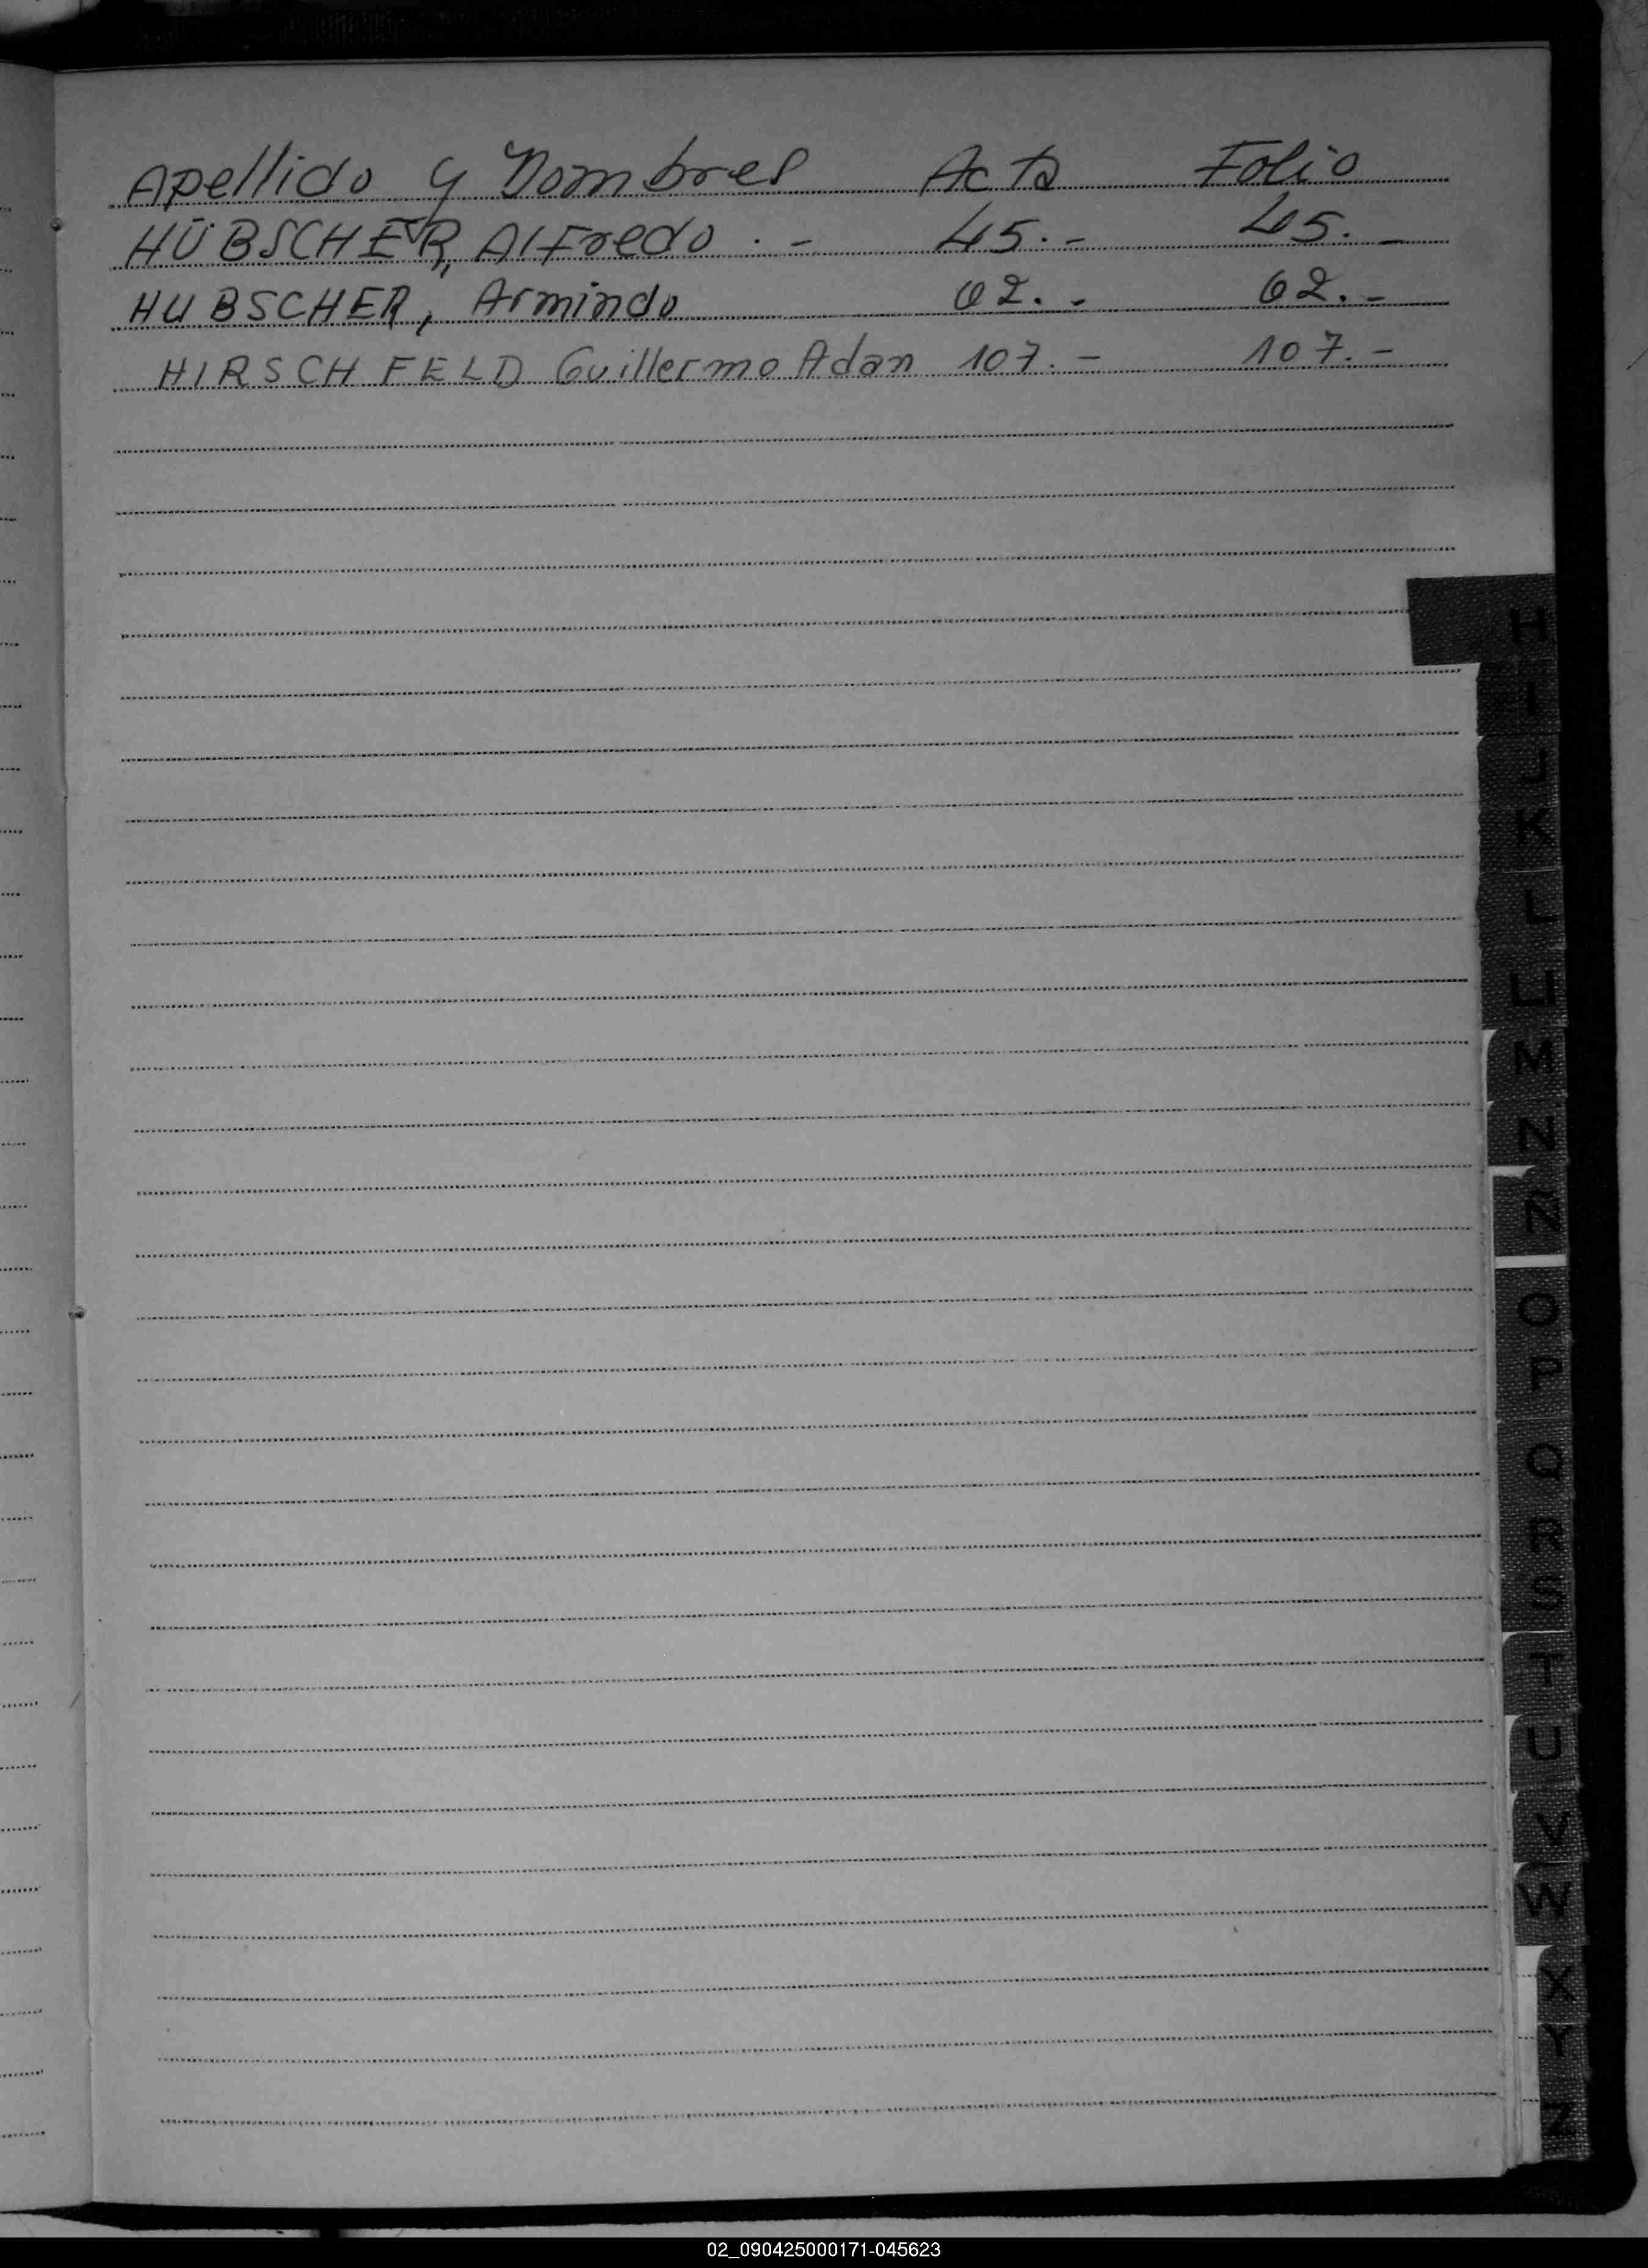 Apellido y Nombres Acta Folio
HÜBSCHER, Alfredo . - 45. - 45. -
HUBSCHER, Armindo 62. - 62. -
HIRSCHFELD Guillermo Adan 107. - 107. -
H
I
J
K
L
LL
M
N
Ñ
O
P
Q
R
S
T
U
V
W
X
Y
Z
02_090425000171-045623